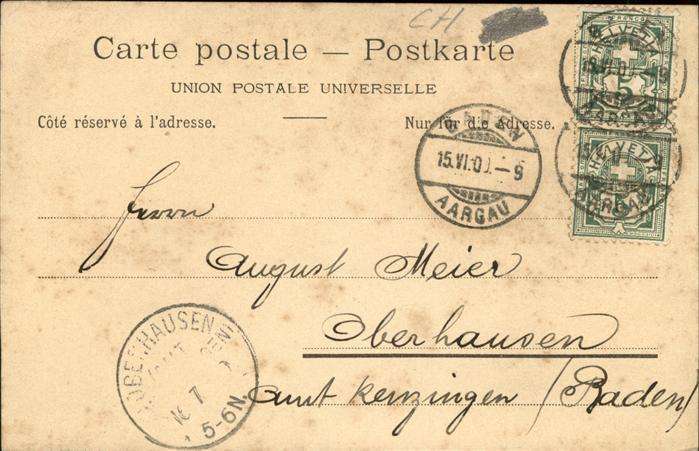 CH
Carte postale — Postkarte
UNION POSTALE UNIVERSELLE
Côté réservé à l'adresse.
Nur für die Adresse.
HELVETIA
AARGAU
HELVETIA
AARGAU
BADEN
15.VI.0 – 9
AARGAU
Herrn
August Meier
Oberhausen
Amt Kenzingen (Baden)
OBERHAUSEN
16 7
5-6N.